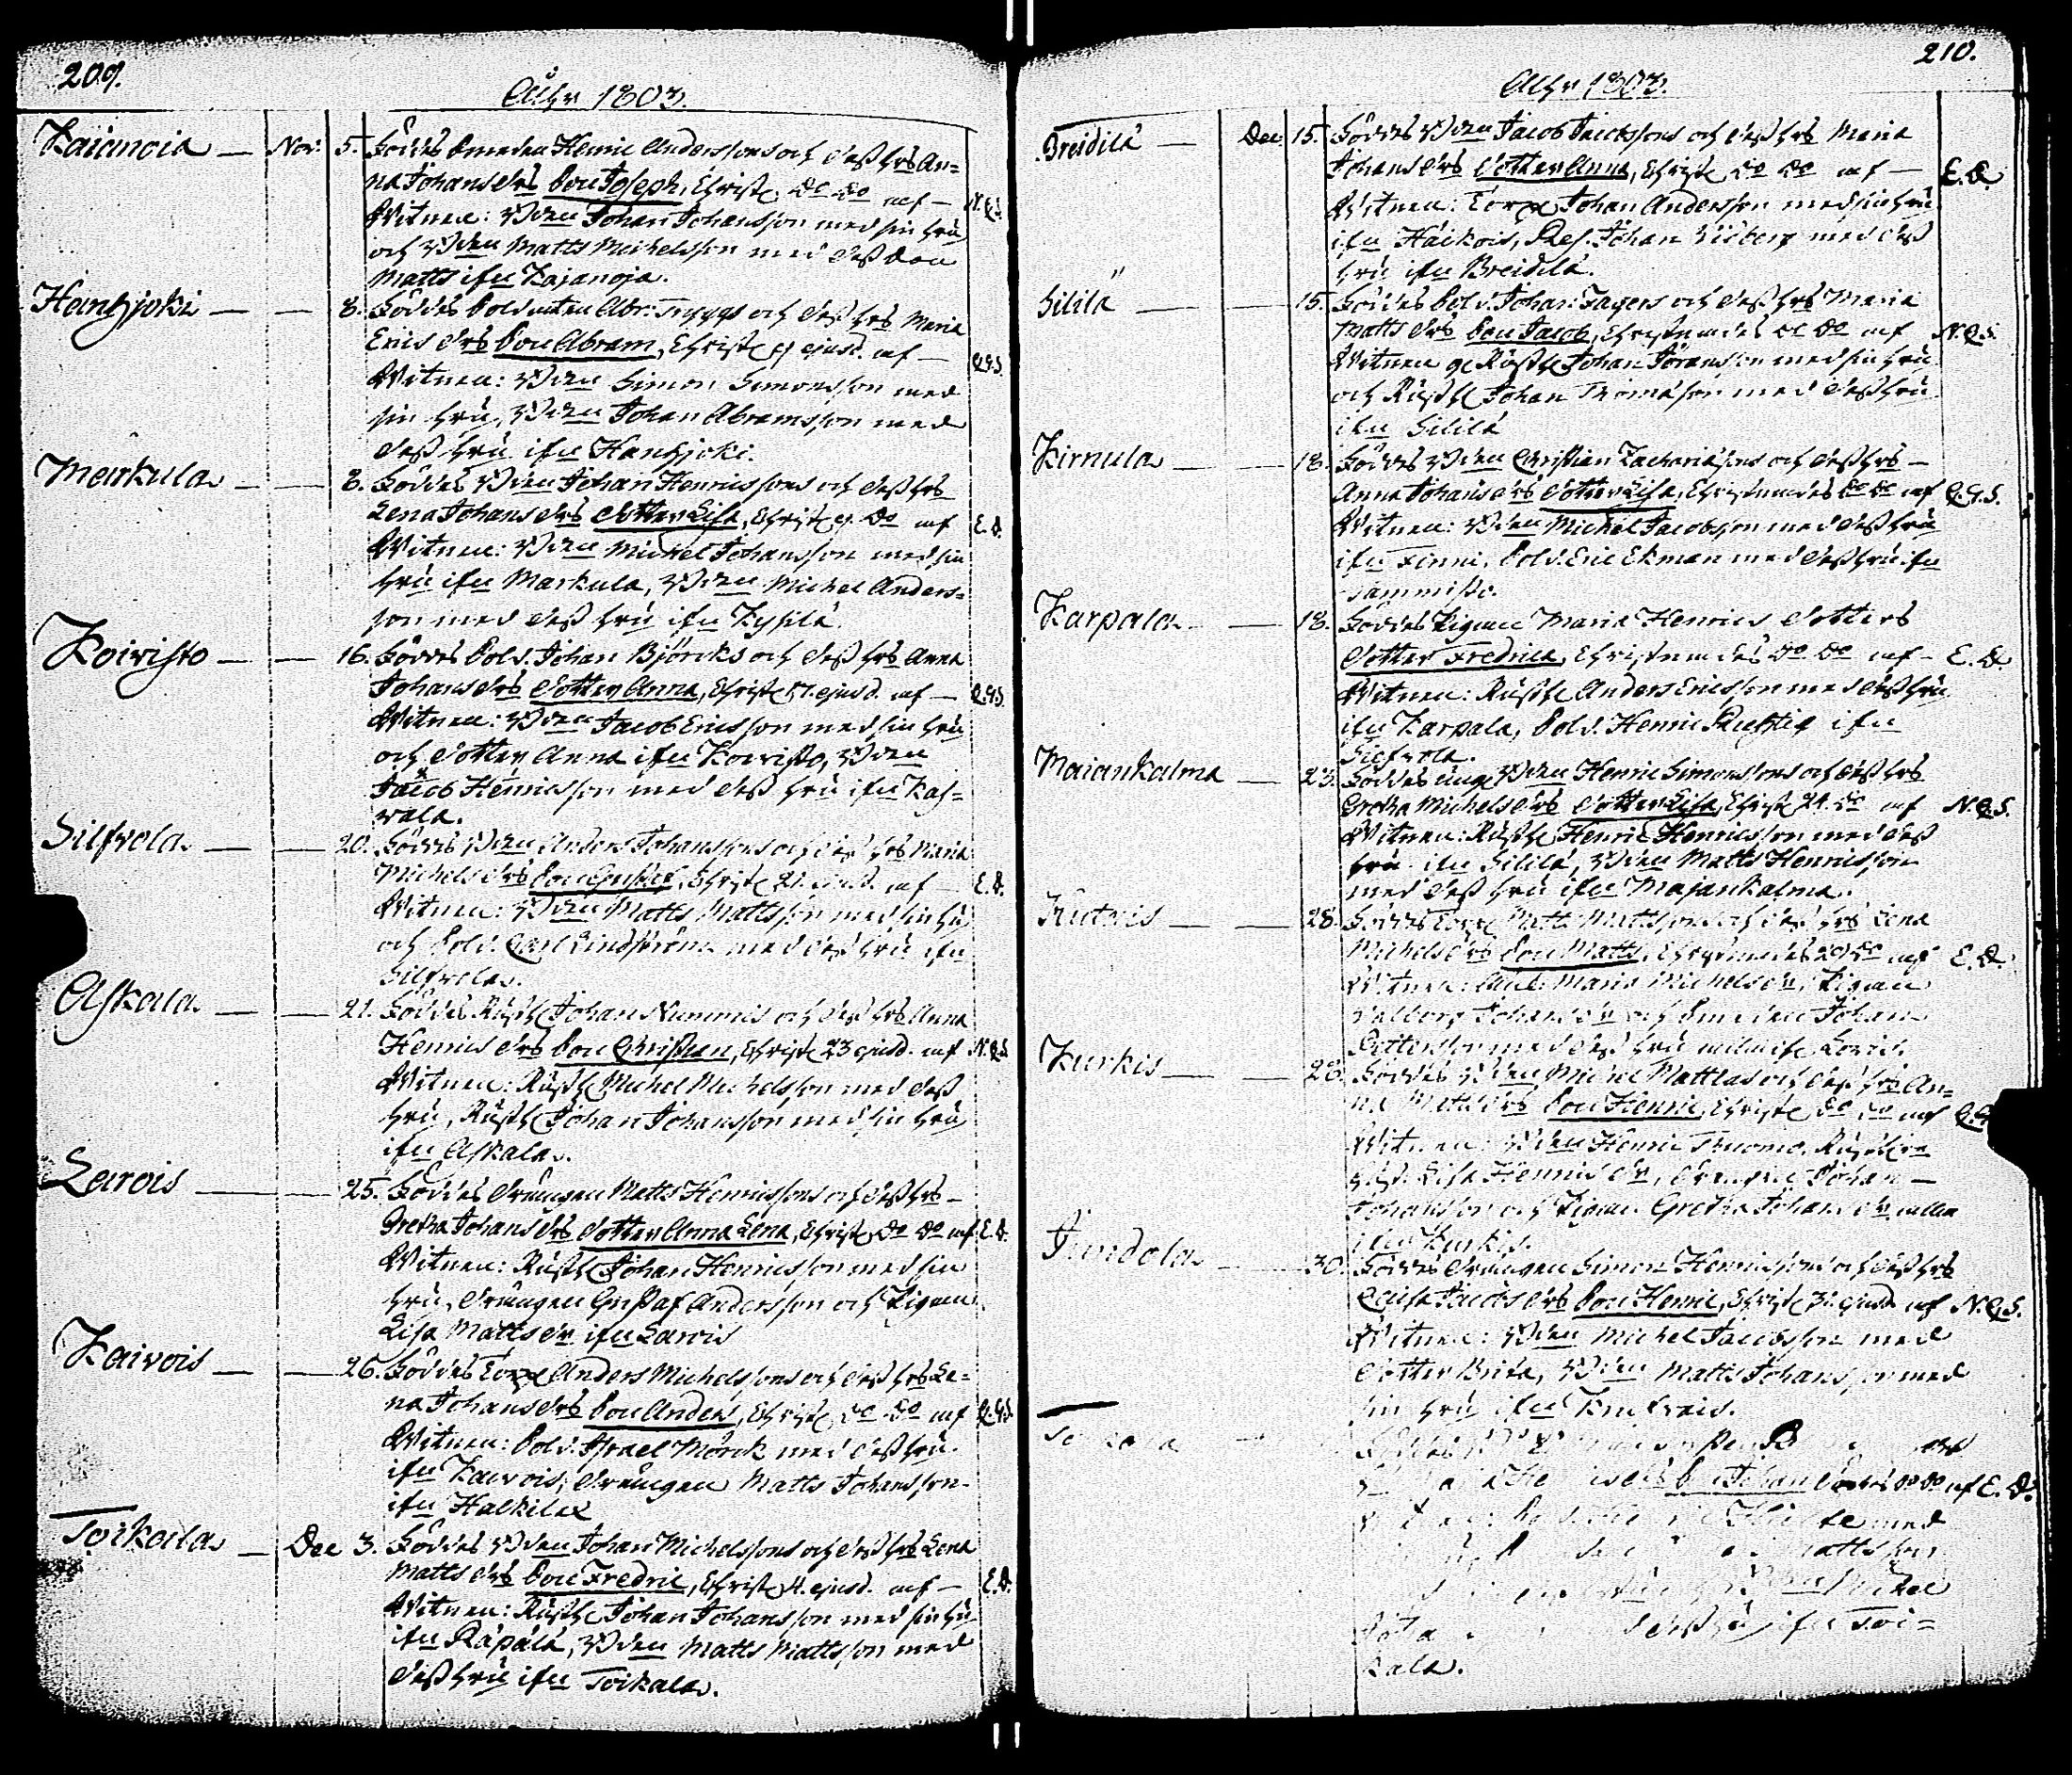 209.
Åhr 1803.
Kaianoia — Nov. 5. Föddes Smeden Henric Anderssons och dess hrs An=
na Johansdrs Son Joseph, Christ. do do af — N.G.S.
Witnen: Bden Johan Johansson med sin hru
och Bden Matts Michelsson med dess Son
Matts ifrn Kajanoja.
Hanhjoki — — 8. Föddes Soldaten Abr. Tryggs och dess hrs Maria
Erics drs Son Abram, Christ. 9 ejusd. af — C.G.S.
Witnen: Bden Simon Simonsson med
sin hru, Bden Johan Abramsson med
dess hru ifrn Hanhjoki.
Markula — — 8. Föddes Bden Johan Henricssons och dess hrs
Lena Johans drs dotter Lisa, Christ. 9. do af E.D.
Witnen: Bden Michel Johansson med sin
hru ifrn Markula, Bden Michel Anders=
son med dess hru ifrn Kysilä.
Koivisto — — 16. Föddes Sold. Johan Björcks och dess hrs Anna
Johans drs dotter Anna, Christ. 17. ejusd. af — C.G.S.
Witnen: Bden Jacob Ericsson med sin hru
och dotter Anna ifrn Koivisto, Bden
Jacob Henricsson med dess hru ifrn Kas=
vala.
Silfvola — — 20. Föddes Bden Anders Johanssons och dess hrs Maria
Michels drs Son Gustaf, Christ. 21. ejusd. af — E.D.
Witnen: Bden Matts Mattsson med sin hru
och Sold. Carl Lindström med dess hru ifrn
Silfvola.
Askala — — 21. Föddes Rusth. Johan Nummis och dess hrs Anna
Henrics drs Son Christian, Christ. 23 ejusd. af N.G.S.
Witnen: Rusth. Michel Michelsson med dess
hru, Rusth. Johan Johansson med sin hru
ifrn Askala.
Larois — — 25. Föddes Drängen Matts Henricssons och dess hrs —
Gretha Johans drs dotter Anna Lena, Christ. do do af E.D.
Witnen: Rusth. Johan Henricsson med sin
hru, Drängen Gustaf Andersson och Pigan
Lisa Matts dr ifrn Larois
Kairois — — 26. Föddes Torp. Anders Michelssons och dess hrs Le=
na Johans drs Son Anders, Christ. do do af C.G.S.
Witnen: Sold. Israel Mörck med dess hru
ifrn Kairois, Drängen Matts Johansson
ifrn Halkila
Toikala — Dec 3. Föddes Bden Johan Michelssons och dess hrs Lena
Matts drs Son Fredric, Christ. 4. ejusd. af — E.D.
Witnen: Rusth. Johan Johansson med sin hru
ifrn Räpälä, Bden Matts Mattsson med
dess hru ifrn Toikala.
210.
Åhr 1803.
Breidilä — Dec. 15. Föddes Bden Jacob Jacobssons och dess hrs Maria
Johans drs dotter Anna, Christ. do do af — E.D.
Witnen: Torp. Johan Andersson med sin hru
ifrn Haikois, Johan med dess
hru ifrn Breidilä.
Sililä — — 15. Föddes Sold. Johan Jagers och dess hrs Maria
Matts drs Son Jacob, Christnades do do af N.G.S.
Witnen Rusth. Johan Göransson med sin hru
och Rusth. Johan Thomasson med dess hru
ifrn Sililä
Kirnula — — 18. Föddes Bden Christian Zachariæsons och dess hrs —
Anna Johans drs dotter Lisa, Christnades do do af C.G.S.
Witnen: Bden Michel Jacobsson med dess hru
ifrn Finni, Sold. Eric Ekman med dess hru ifrn
Tammisto.
Karpala — — 18. Föddes Pigan Maria Henrics dotters
dotter Fredrica, Christnades do do af — E.D.
Witnen: Rusth. Anders Ericsson med dess hru
ifrn Karpala, Sold. Henric Ruthig ifrn
Siefvola.
Maiankalma — 23. Föddes unge Bden Henric Simonssons och dess hrs
Gretha Michels drs dotter Lisa, Christ. 24. do af N.G.S.
Witnen: Rusth. Henric Henricsson med dess
hru ifrn Sililä, Bden Matts Henricsson
med dess hru ifrn Majankalma.
— — 28. Föddes Torp. Matts Mattssons och dess hrs Lena
Michels drs Son Matts, Christnades 29 do af E.D.
Witnen: Maria Michels dr, Pigan
Valborg Johans dr och Smeden Johan
Pettersson med dess hru
Kurkis — — 28. Föddes Bden Michel Mattlas och dess hrs An=
na Matts drs Son Henric, Christ. do do af C.G.
Witnen: Bden Henric Thuomo,
Lisa Henrics dr, Drängen Johan —
Johansson och Pigan Gretha Johans dr alla
ifrn Kurkis.
Jundola — 30. Föddes Drängen Simon Henricssons och dess hrs
Caisa Jacobs drs Son Henric, Christ. 31. ejusd af N.G.S.
Witnen: Bden Michel Jacobsson med
dotter Brita, Bden Matts Johansson med
sin hru ifrn
Son Johan do do af E.D.
med
Mattsson
Michel
dess hru ifrn Toi=
kala.